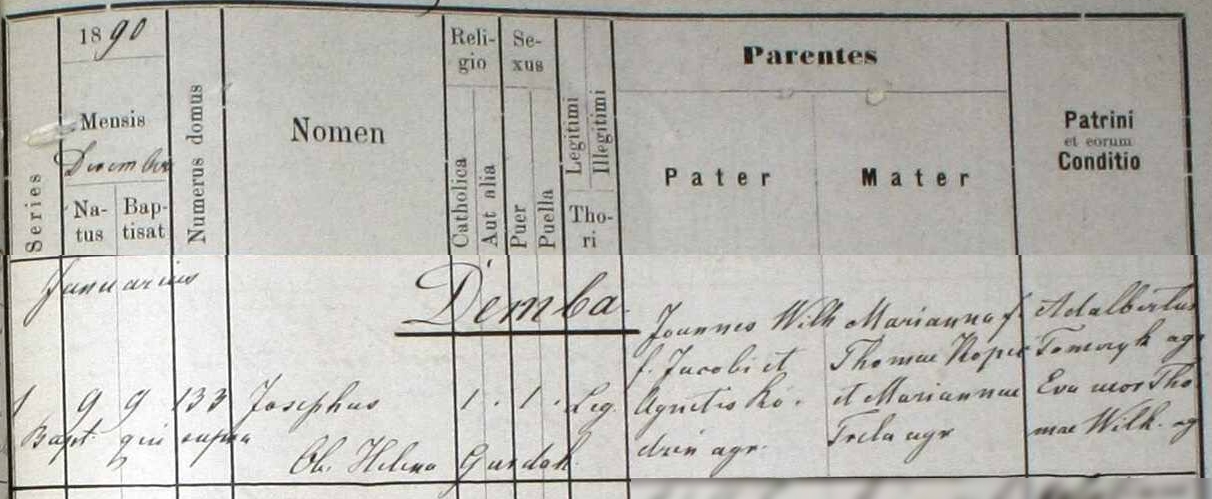 1890
Mensis
December
Series
Natus
Baptisat
Numerus domus
Nomen
Religio
Catholica
Aut alia
Sexus
Puer
Puella
Legitimi
Illegitimi
Thori
Parentes
Pater
Mater
Patrini
et eorum
Conditio
Januarius
Demba
1 9 9 133 Josephus 1 . 1 . Leg.
Bapt. qui supra
Ob. Helena
Joannes Wilk
f. Jacobi et
Agnetis Ko-
dzin agr.
Marianna f.
Thomae Kopec
et Mariannae
Trela agr
Adalbertus
Tomczyk agr
Eva uxor Tho
mae Wilk. ag